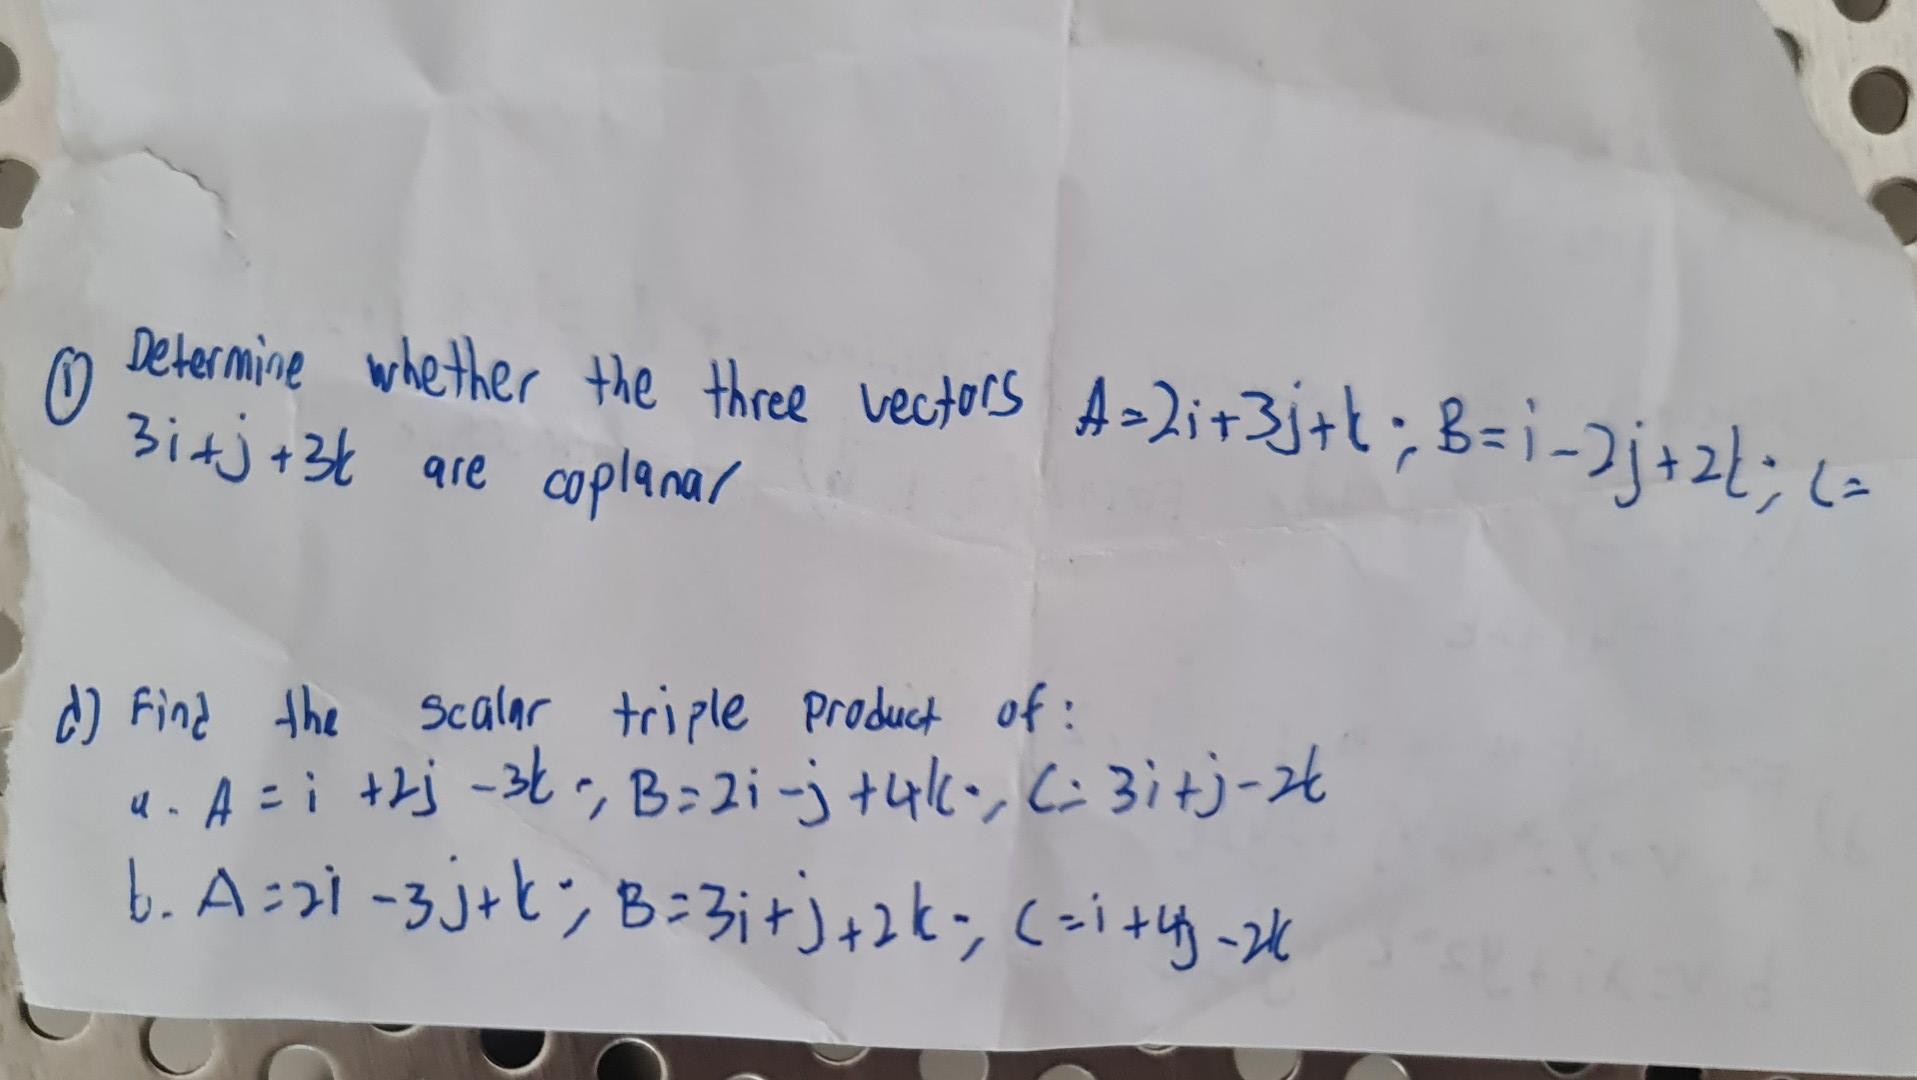 ① Determine whether the three vectors A=2i+3j+k; B=i-2j+2k; C=
3i+j+3k are coplanar
d) Find the scalar triple product of:
a. A = i +2j -3k; B=2i-j+4k; C= 3i+j-2k
b. A=2i-3j+k; B=3i+j+2k; C=i+4j-2k